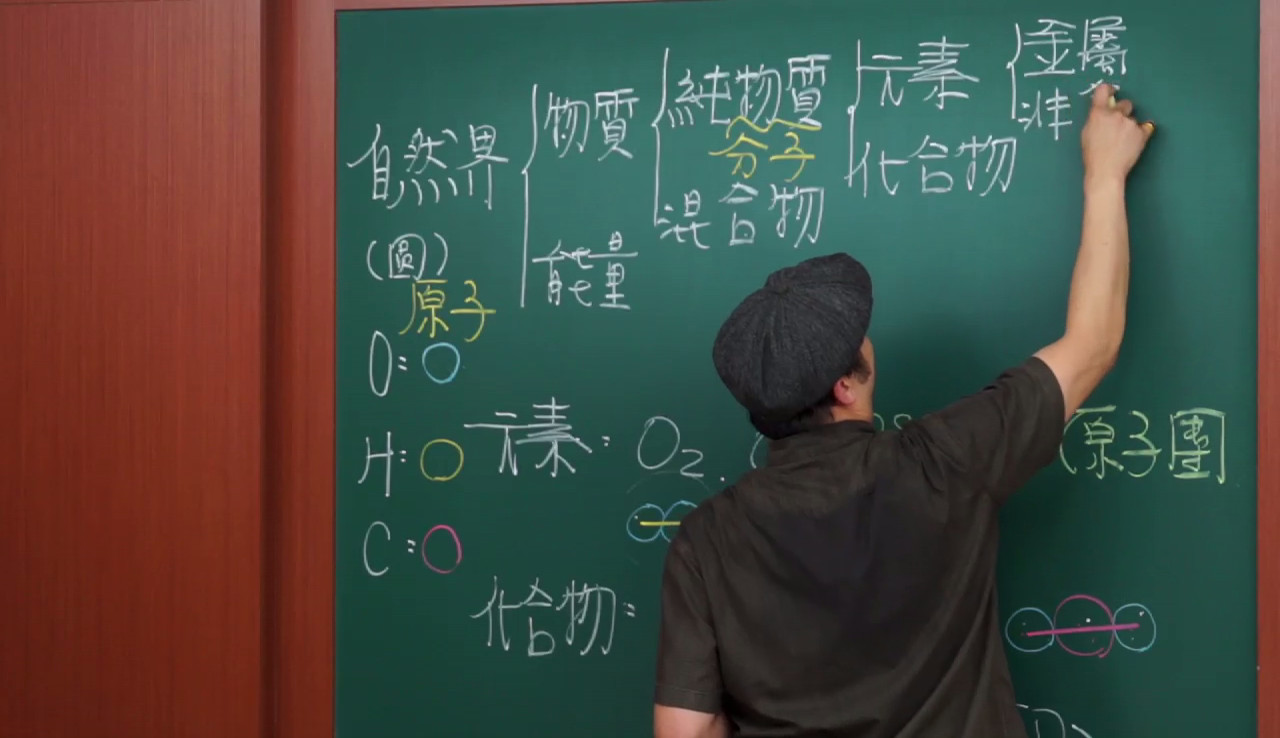 自然界 { 物質 { 純物質 { 元素 { 金屬
非
分子
化合物
混合物
能量
(圓)
原子
O:
H:
C:
元素: O2.
(原子團
化合物: